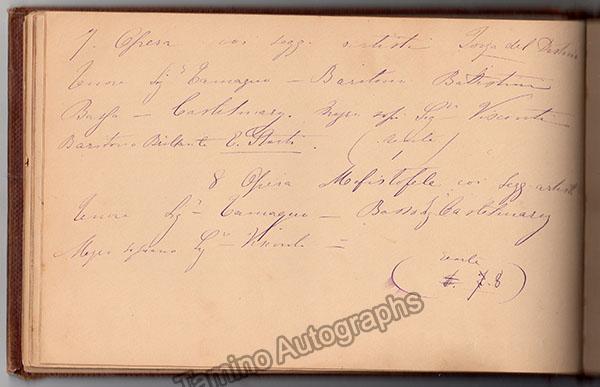 7. Opera coi segg. artisti Forza del Destino
Tenore Sigr Tamagno — Baritono Battistini
Basso — Castelmary. Mezzo sop. Siga Visconti
Baritono Brillante E. Storti. (volta)
8 Opera Mefistofele coi segg. artisti
Tenore Sigr Tamagno — Basso Castelmary
Mezzo soprano Siga Visconti =
(volta
7.8)
Tamino Autographs